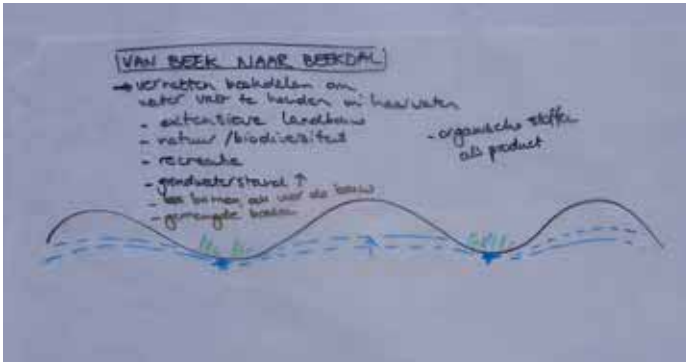 VAN BEEK NAAR BEEKDAL
→ vernatten beekdalen om
water vast te houden in haarvaten
- extensieve landbouw
- natuur/biodiversiteit
- recreatie
- grondwaterstand ↑
- binnen als voor de bouw
- gemengde
- organische stoffen
als product